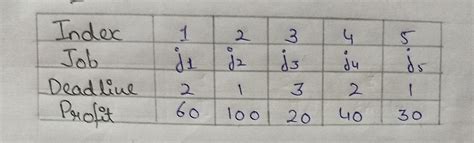 Index 1 2 3 4 5
Job j1 j2 j3 j4 j5
Deadline 2 1 3 2 1
Profit 60 100 20 40 30